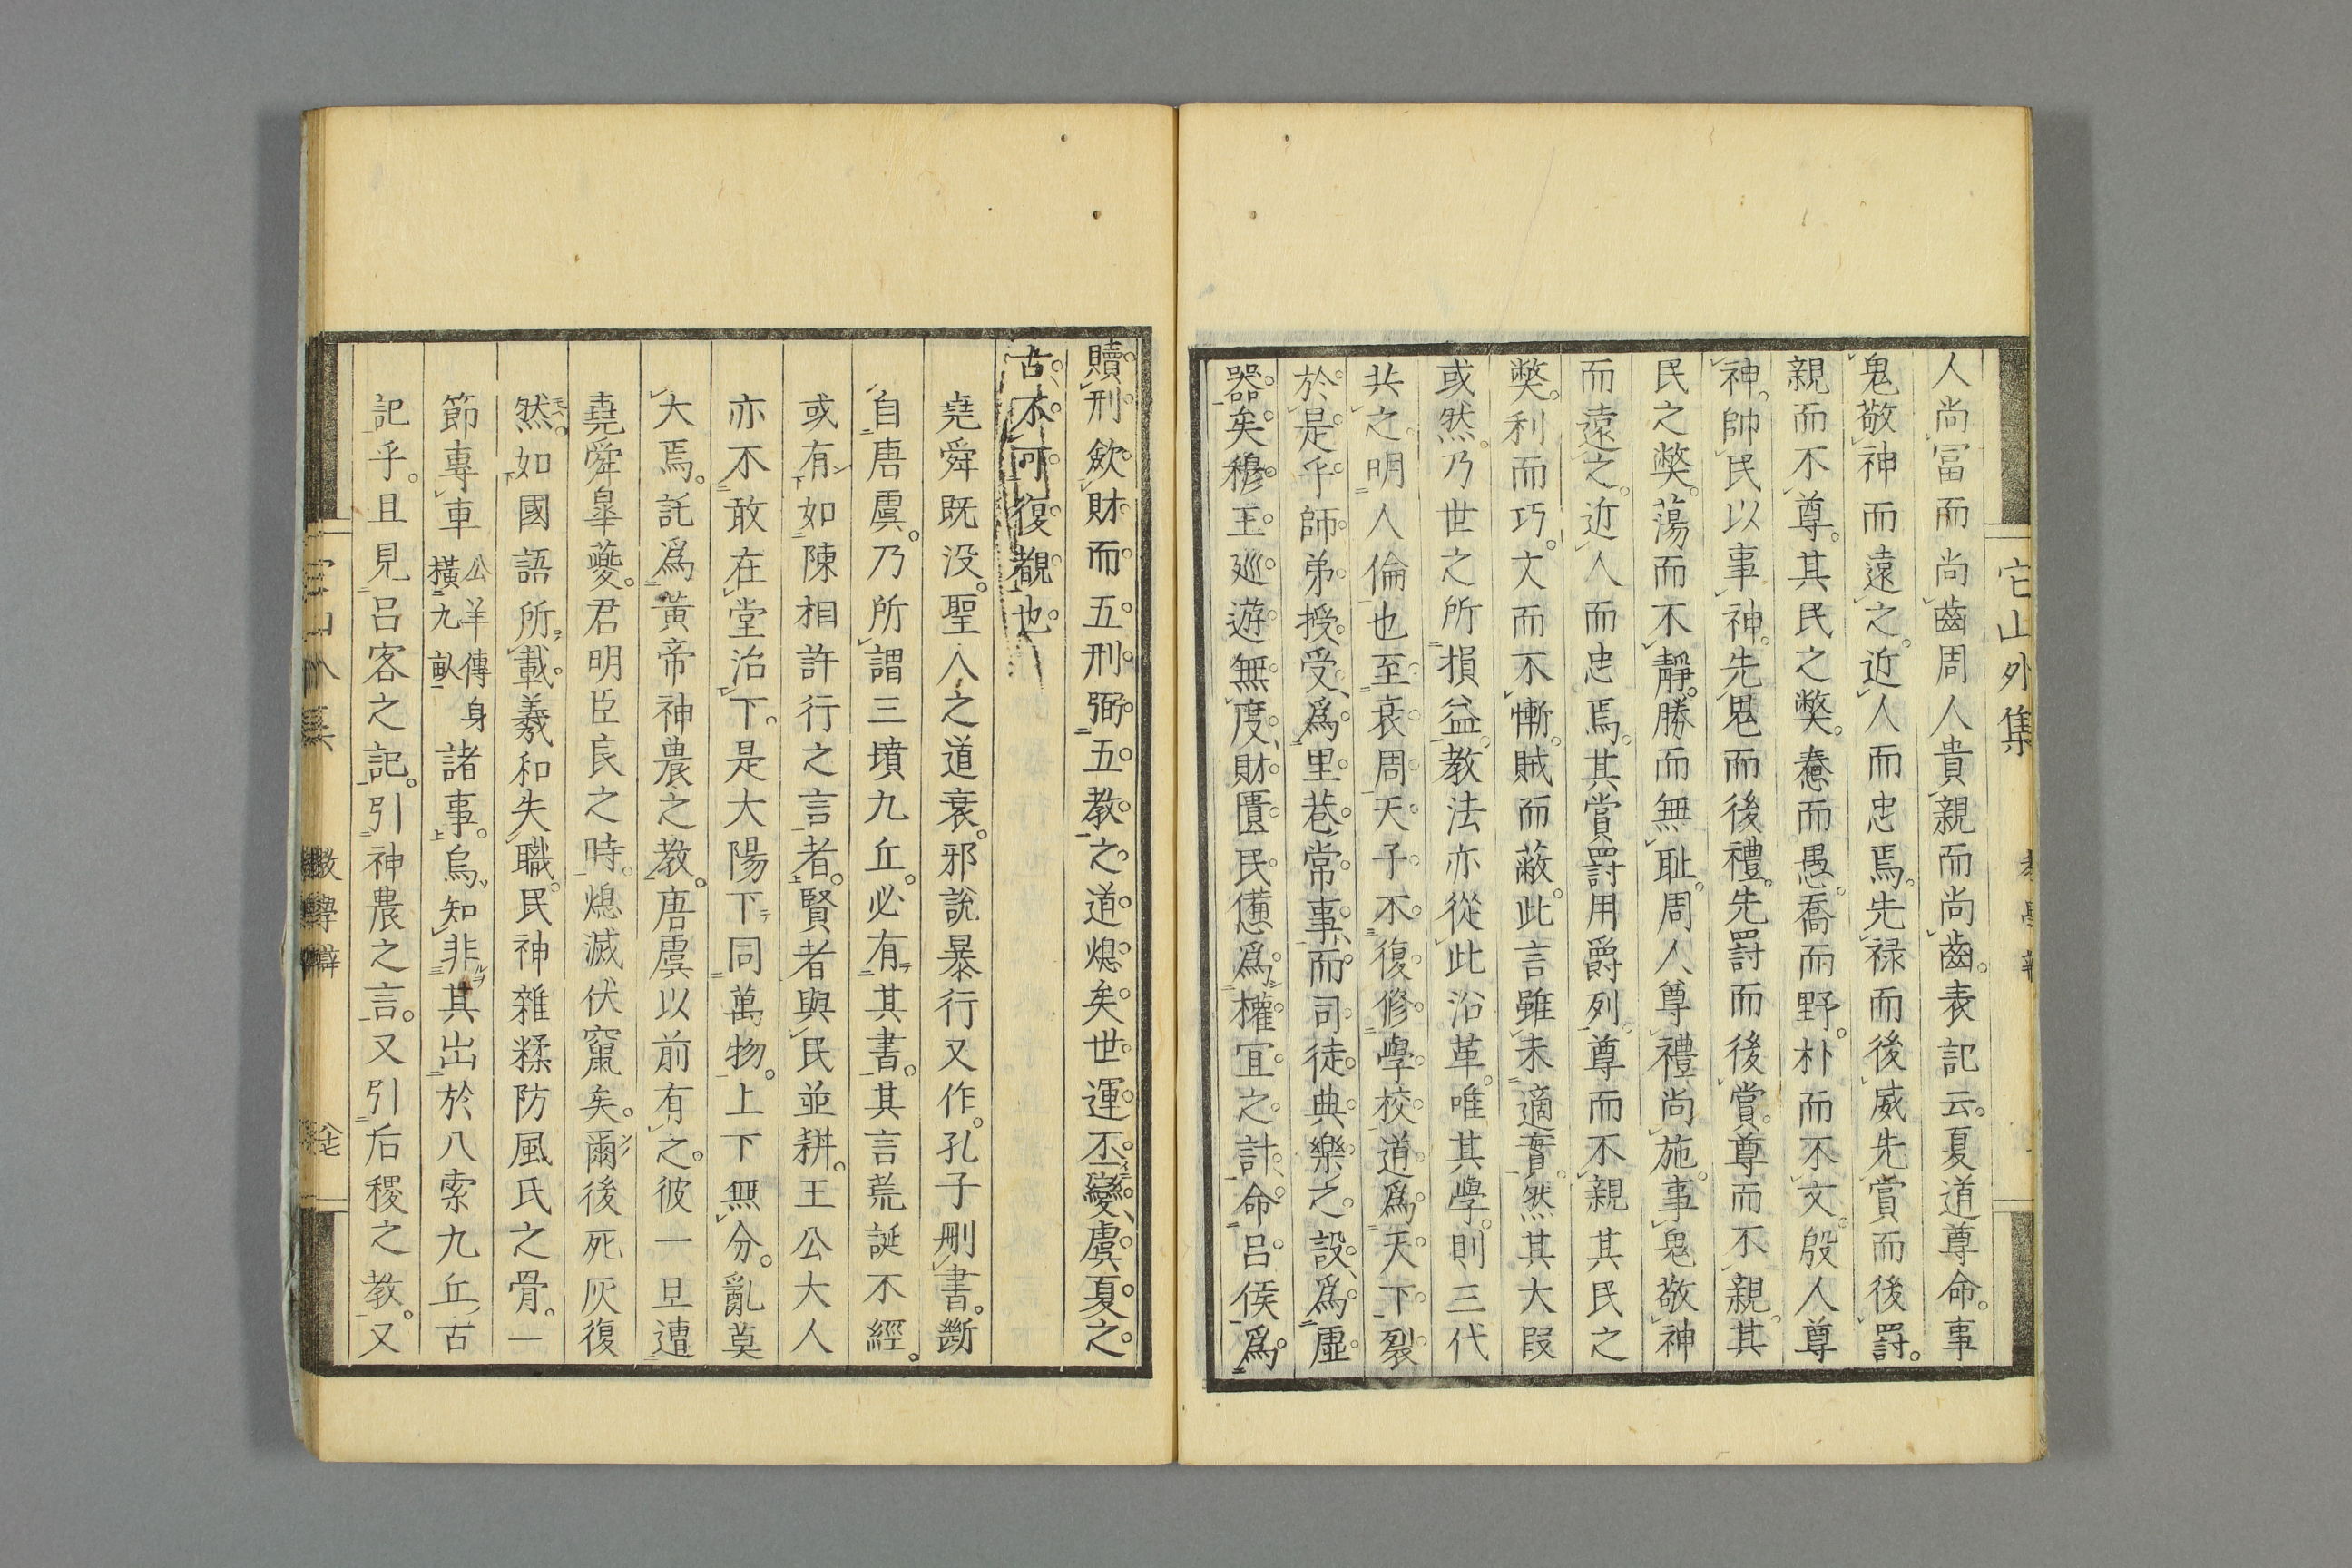 它山外集
人尚富而尚齒周人貴親而尚齒。表記云。夏道尊命。事
鬼敬神而遠之。近人而忠焉。先祿而後威先賞而後罰。
親而不尊。其民之獘。惷而愚。喬而野。朴而不文。殷人尊
神。帥民以事神。先鬼而後禮。先罰而後賞。尊而不親。其
民之獘。蕩而不靜。勝而無耻。周人尊禮尚施。事鬼敬神
而遠之。近人而忠焉。其賞罰用爵列。尊而不親其民之
獘。利而巧。文而不慚。賊而蔽。此言雖未適實。然其大叚
或然。乃世之所損益。教法亦從此沿革。唯其學。則三代
共之明人倫也至衰周天子不復修學校道爲天下裂
於是乎師弟授受、爲里巷常事、而司徒典樂之設、爲虛
器矣。穆王巡遊無度、財匱民憊爲權宜之計、命呂侯爲
贖刑歛財而五刑弼五教之道熄矣世運丕變、虞夏之
古、不可復覩也
堯舜既没。聖人之道衰。邪說暴行又作。孔子刪書。斷
自唐虞。乃所謂三墳九丘。必有其書。其言荒誕不經。
或有如陳相許行之言者。賢者與民並耕。王公大人
亦不敢在堂治下。是大陽下同萬物。上下無分。亂莫
大焉。託爲黃帝神農之教。唐虞以前有之。彼一旦遭
堯舜皋夔。君明臣良之時。熄滅伏竄矣。爾後死灰復
然。如國語所載。羲和失職。民神雜糅防風氏之骨。一
節專車公羊傳身橫九畝諸事。烏知非其出於八索九丘、古
記乎。且見呂客之記。引神農之言。又引后稷之教。又
教學辯